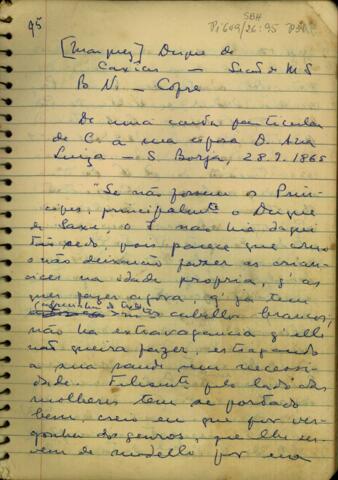 45
SBH
Pi 649/26:95 P31
[Marquez] Duque de
Caxias — Secão de MS
B. N. — Copia
De uma carta particular
de C. a sua esposa D. Ana
Luiza — S. Borja, 28.9.1865
"Se não fossem os Prin-
cipes, principalmte o Duque
de Saxe, o I não hia daqui
tão cedo, pois parece que como
o não deixarão fazer as crian-
cices na idade propria, q' as
quer fazer agora, q' ja tem
cabellos brancos,
não ha extravagancia q' elle
não queira fazer, estragando
a sua saude sem necessi-
dade. Felismte pelo lado das
molheres tem se portado
bem, creio eu que por ver-
gonha dos genros, que lhe ser-
vem de modello por ora